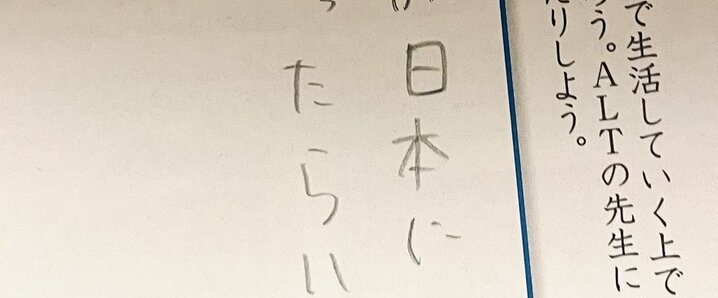 で生活していく上で
う。ALTの先生に
りしよう。
日本に
たらい